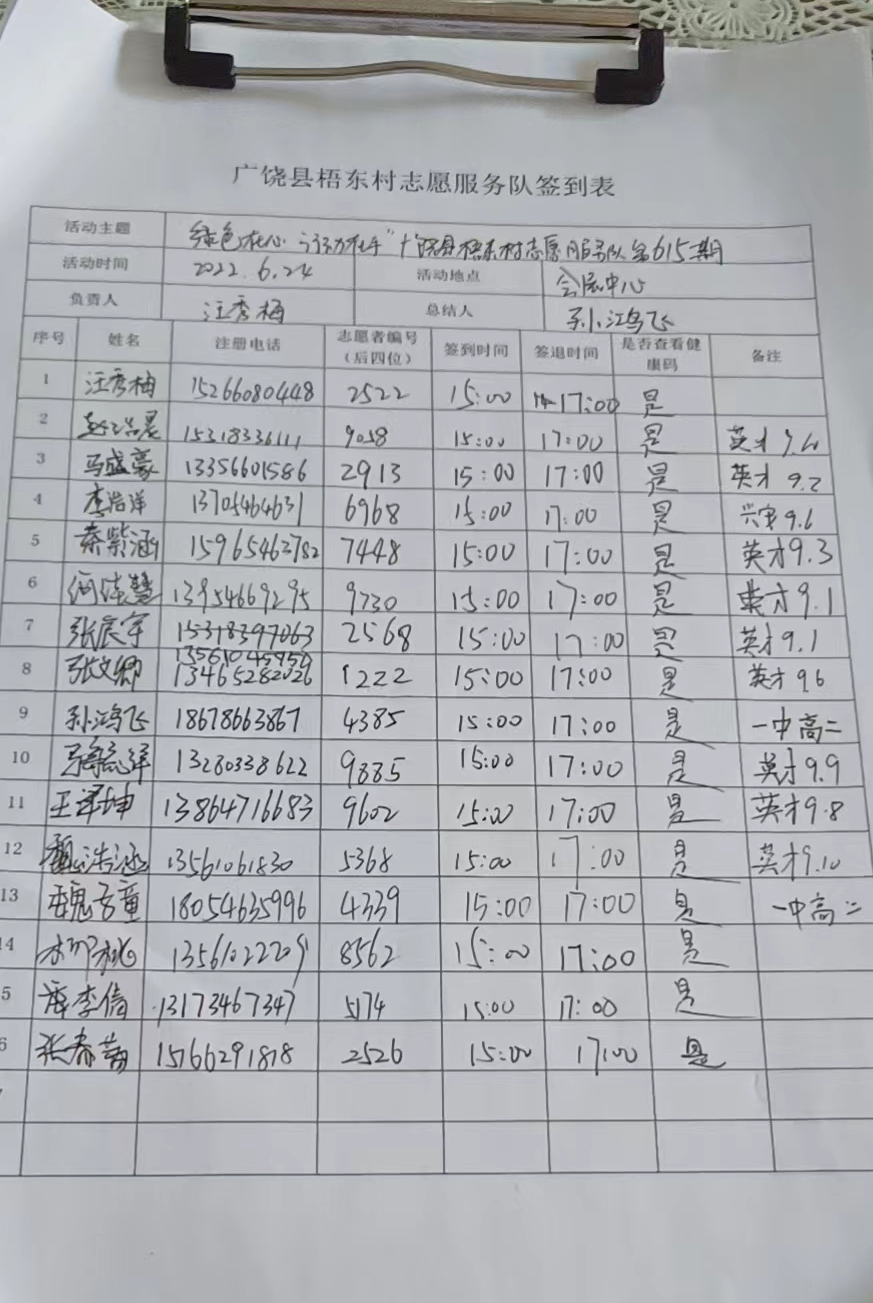 广饶县梧东村志愿服务队签到表
活动主题 绿色在心 行动在手"广饶县梧东村志愿服务队第615期
活动时间 2022.6.24 活动地点 会展中心
负责人 汪秀梅 总结人 孙鸿飞
序号 姓名 注册电话 志愿者编号（后四位） 签到时间 签退时间 是否查看健康码 备注
1 汪秀梅 15266080448 2522 15:00 17:00 是
2 15318336111 9058 15:00 17:00 是 英才
3 马盛豪 13356601586 2913 15:00 17:00 是 英才 9.2
4 李浩洋 13705464631 6968 15:00 17:00 是 9.6
5 秦紫涵 15965463782 7448 15:00 17:00 是 英才9.3
6 13954669295 9730 15:00 17:00 是 英才9.1
7 张宸宇 15318397063 2568 15:00 17:00 是 英才9.1
8 张文卿 13465282026 1222 15:00 17:00 是 英才 9.6
9 孙鸿飞 18678663867 4385 15:00 17:00 是 一中高二
10 13280338622 9885 15:00 17:00 是 英才9.9
11 王泽坤 13864716683 9602 15:00 17:00 是 英才9.8
12 魏浩涵 13561061830 5368 15:00 17:00 是 英才9.10
13 18054635996 4339 15:00 17:00 是 一中高二
14 13561022209 8562 15:00 17:00 是
5 李倩 13173467347 5174 15:00 17:00 是
6 15766291818 2526 15:00 17:00 是